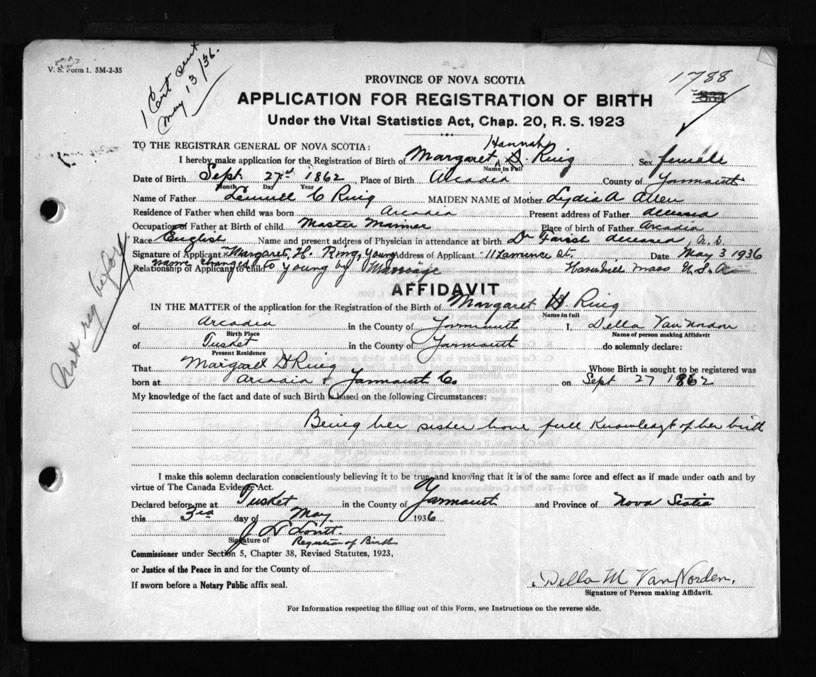 V. S. Form 1. 5M-2-35
1 Cert sent
May 13/36.
1788
PROVINCE OF NOVA SCOTIA
APPLICATION FOR REGISTRATION OF BIRTH
Under the Vital Statistics Act, Chap. 20, R. S. 1923
TO THE REGISTRAR GENERAL OF NOVA SCOTIA:
Hannah
I hereby make application for the Registration of Birth of Margaret H. Ring Sex female
Name in Full
Date of Birth Sept 27 1862 Place of Birth Arcadia County of Yarmouth
Month Day Year
Name of Father Lemuel C Ring MAIDEN NAME of Mother Lydia A Allen
Residence of Father when child was born Arcadia Present address of Father deceased
Occupation of Father at Birth of child Master Mariner Place of birth of Father Arcadia
Race English Name and present address of Physician in attendance at birth Dr Farish deceased N.S.
Signature of Applicant Margaret H. Ring, Young Address of Applicant 11 Lawrence St. Date May 3 1936
name changed to Young by Marriage Haverhill Mass U.S.A
Relationship of Applicant to child
Not reg before
AFFIDAVIT
IN THE MATTER of the application for the Registration of the Birth of Margaret H. Ring
Name in full
of Arcadia in the County of Yarmouth I, Della VanNorden
Birth Place Name of person making Affidavit
of Tusket in the County of Yarmouth do solemnly declare:
Present Residence
That Margaret H Ring Whose Birth is sought to be registered was
born at Arcadia Yarmouth Co. on Sept 27 1862
My knowledge of the fact and date of such Birth is based on the following Circumstances:
Being her sister have full Knowledge of her birth
I make this solemn declaration conscientiously believing it to be true and knowing that it is of the same force and effect as if made under oath and by
virtue of The Canada Evidence Act.
Declared before me at Tusket in the County of Yarmouth and Province of Nova Scotia
this 3rd day of May 1936
Signature of Registrar of Birth
Commissioner under Section 5, Chapter 38, Revised Statutes, 1923,
or Justice of the Peace in and for the County of
If sworn before a Notary Public affix seal.
Della M VanNorden.
Signature of Person making Affidavit.
For Information respecting the filling out of this Form, see Instructions on the reverse side.